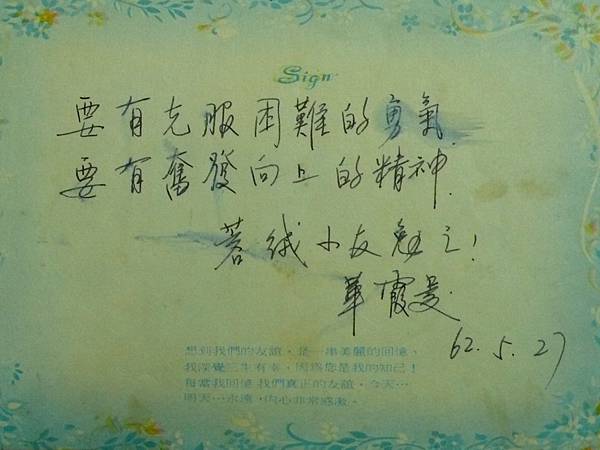 Sign
要有克服困難的勇氣.
要有奮發向上的精神.
蓉絨小友勉之!
華霞菱.
62.5.27
想到我們的友誼，是一串美麗的回憶、
我深覺三生有幸，因為您是我的知己！
每當我回憶 我們真正的友誼，今天⋯
明天⋯永遠，內心非常感激。